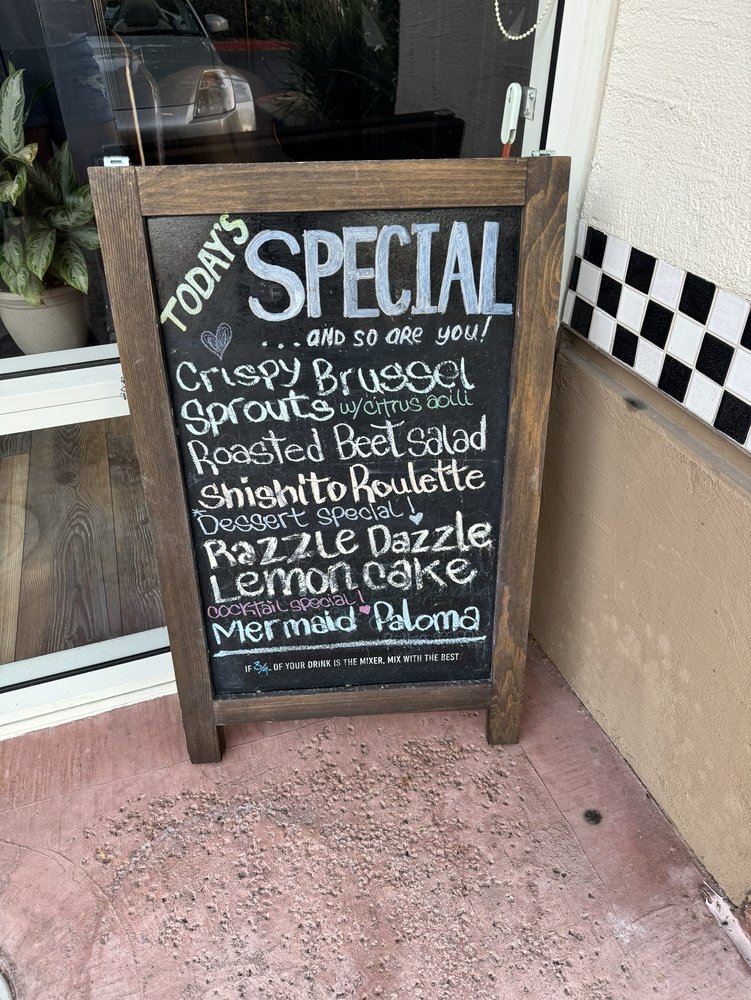 TODAY'S
SPECIAL
...AND SO ARE YOU!
Crispy Brussel
Sprouts w/citrus aoili
Roasted Beet salad
Shishito Roulette
*Dessert special!
Razzle Dazzle
Lemon cake
cocktail special!
Mermaid Paloma
IF 3/4 OF YOUR DRINK IS THE MIXER, MIX WITH THE BEST.